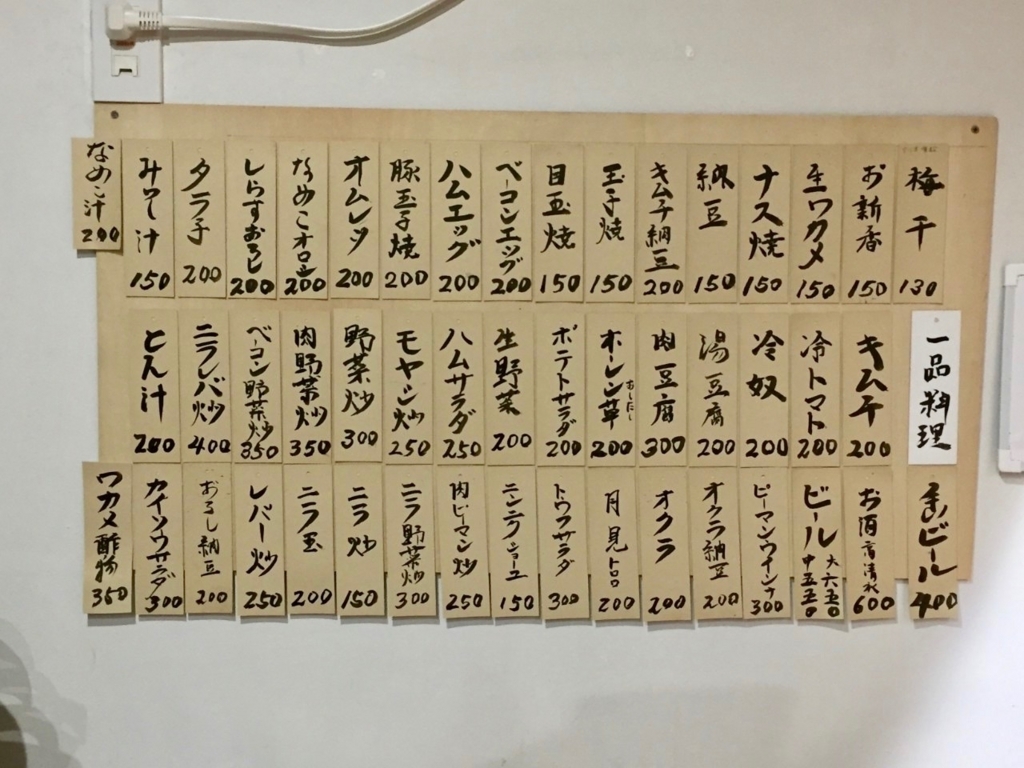 梅干 130
お新香 150
生ワカメ 150
ナス焼 150
納豆 150
キムチ納豆 200
玉子焼 150
目玉焼 150
ベーコンエッグ 200
ハムエッグ 200
豚玉子焼 200
オムレツ 200
なめこオロシ 200
しらすおろし 200
タラ子 200
みそ汁 150
なめこ汁 200
一品料理
キムチ 200
冷トマト 200
冷奴 200
湯豆腐 200
肉豆腐 300
ホーレン草おしたし 200
ポテトサラダ 200
生野菜 200
ハムサラダ 250
モヤシ炒 250
野菜炒 300
肉野菜炒 350
ベーコン野菜炒 350
ニラレバ炒 400
とん汁 200
ビール 400
お酒 高清水 600
ビール 大六五〇 中五五〇
ピーマンウインナ 300
オクラ納豆 200
オクラ 200
月見トロロ 200
トウフサラダ 300
ニンニクショーユ 150
肉ピーマン炒 250
ニラ野菜炒 300
ニラ炒 150
ニラ玉 200
レバー炒 250
おろし納豆 200
カイソウサラダ 300
ワカメ酢物 350